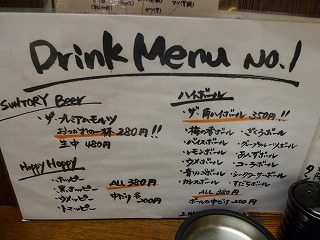 Drink Menu No.1
SUNTORY Beer
・ザ・プレミアムモルツ
おつかれの一杯 280円!!
生中 480円
Hoppy Hoppy
・ホッピー
・黒ホッピー
ALL 380円
中おかわり 200円
ハイボール
・ザ・角ハイボール 350円!!
・梅の香ボール
・ざくろボール
・バイスボール
・グレープフルーツボール
・レモンボール
・あんずボール
・ウメボール
・コーラボール
・青りんごボール
・シークワーサーボール
・カシスボール
・すだちボール
ALL 380円